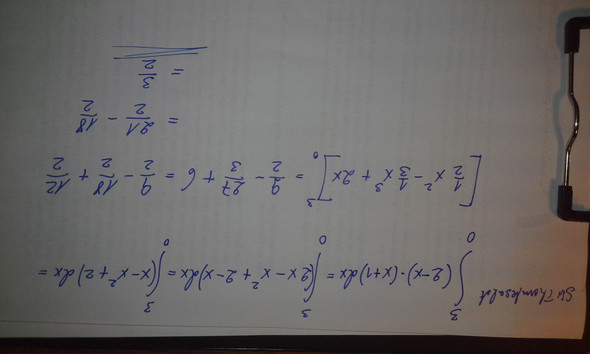 ∫₀³ (2-x)·(x+1) dx = ∫₀³ (2x - x² + 2 - x) dx = ∫₀³ (x - x² + 2) dx =
[1/2 x² - 1/3 x³ + 2x]₀³ = 9/2 - 27/3 + 6 = 9/2 - 18/2 + 12/2
= 21/2 - 18/2
= 3/2